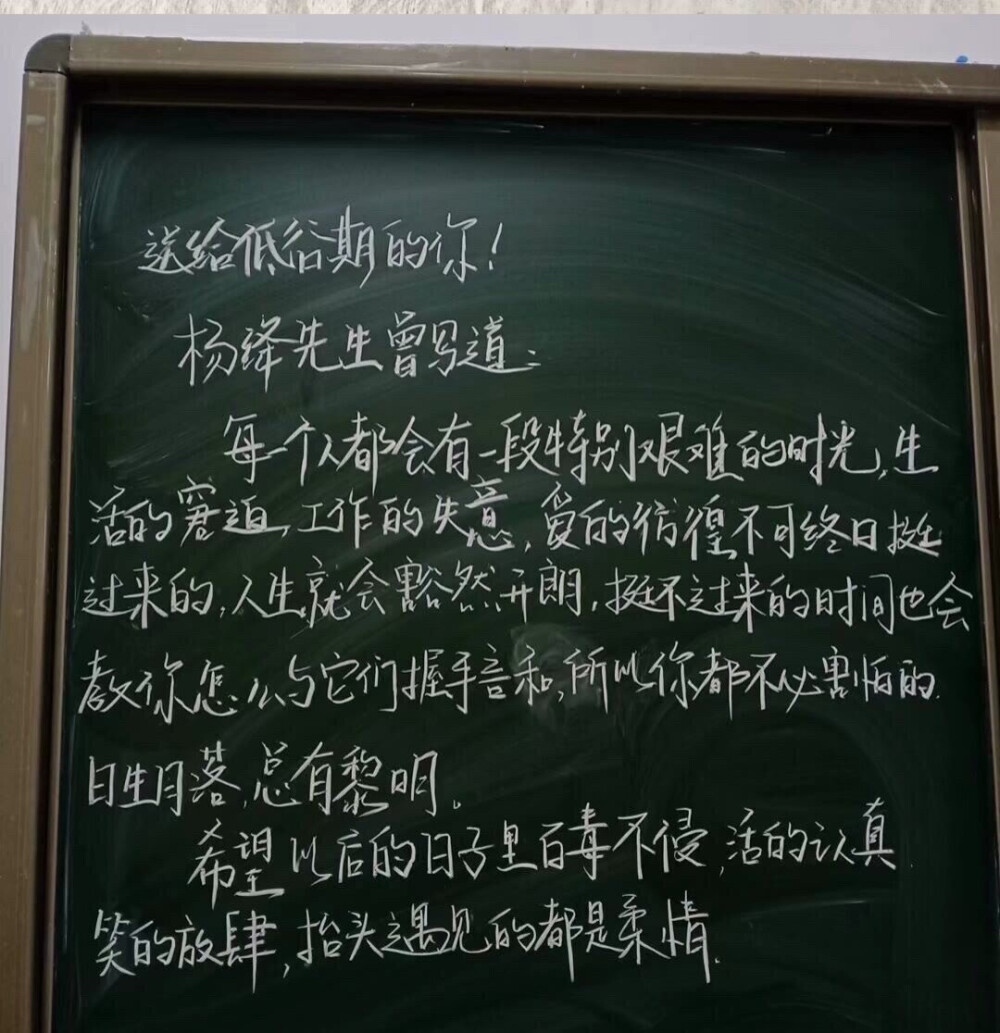 送给低谷期的你！
杨绛先生曾写道：
每一个人都会有一段特别艰难的时光，生
活的窘迫，工作的失意，爱的彷徨不可终日挺
过来的，人生就会豁然开朗，挺不过来的时间也会
教你怎么与它们握手言和，所以你都不必害怕的.
日生月落，总有黎明。
希望以后的日子里百毒不侵，活的认真
笑的放肆，抬头遇见的都是柔情.